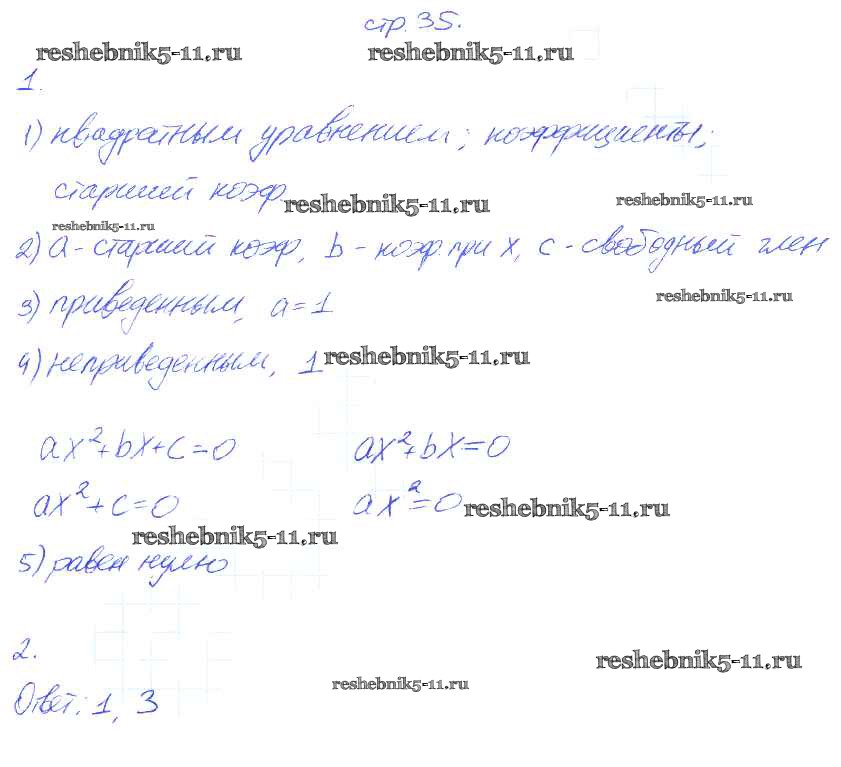 стр. 35.
reshebnik5-11.ru reshebnik5-11.ru
1.
1) квадратным уравнением; коэффициенты;
старшей коэф reshebnik5-11.ru reshebnik5-11.ru
reshebnik5-11.ru
2) a - старший коэф, b - коэф. при x, c - свободный член
reshebnik5-11.ru
3) приведенным, a = 1
4) неприведенным, 1 reshebnik5-11.ru
ax²+bx+c=0 ax²+bx=0
ax²+c=0 ax²=0 reshebnik5-11.ru
reshebnik5-11.ru
5) равен нулю
2.
reshebnik5-11.ru
reshebnik5-11.ru
Ответ: 1, 3